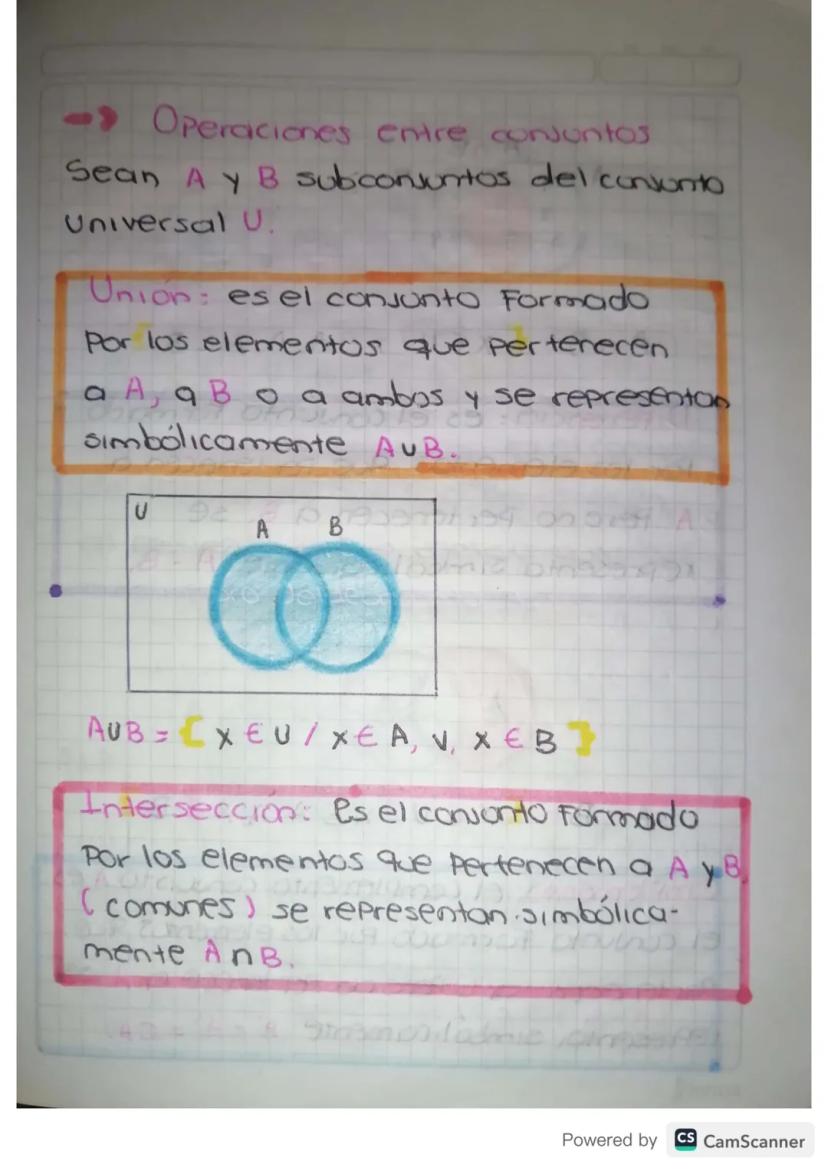 Operaciones entre conjuntos
Sean A y B subconjuntos del conjunto
universal U.
Unión: es el conjunto Formado
Por los elementos que pertenecen
a A, a B o a ambos y se representan
simbólicamente A∪B.
U
A B
A∪B = { x ∈ U / x ∈ A, ∨, x ∈ B }
Intersección: Es el conjunto Formado
Por los elementos que Pertenecen a A y B
(comunes) se representan simbólica-
mente A∩B.
Powered by CS CamScanner